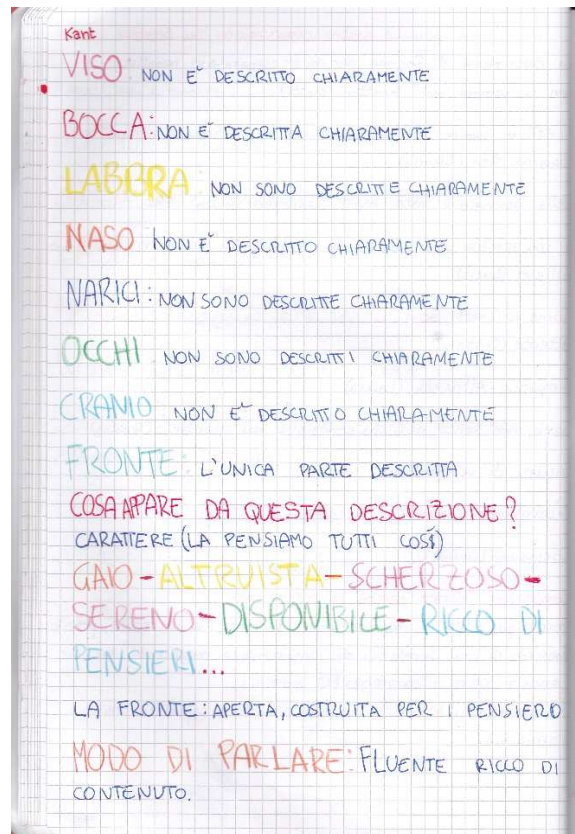 Kant
VISO: NON E' DESCRITTO CHIARAMENTE
BOCCA: NON E' DESCRITTA CHIARAMENTE
LABBRA NON SONO DESCRITTE CHIARAMENTE
NASO NON E' DESCRITTO CHIARAMENTE
NARICI: NON SONO DESCRITTE CHIARAMENTE
OCCHI NON SONO DESCRITTI CHIARAMENTE
CRANIO NON E' DESCRITTO CHIARAMENTE
FRONTE: L'UNICA PARTE DESCRITTA
COSA APPARE DA QUESTA DESCRIZIONE?
CARATTERE (LA PENSIAMO TUTTI COSÍ)
GAIO-ALTRUISTA-SCHERZOSO-
SERENO-DISPONIBILE-RICCO DI
PENSIERI...
LA FRONTE: APERTA, COSTRUITA PER I PENSIERO
MODO DI PARLARE: FLUENTE RICCO DI
CONTENUTO.